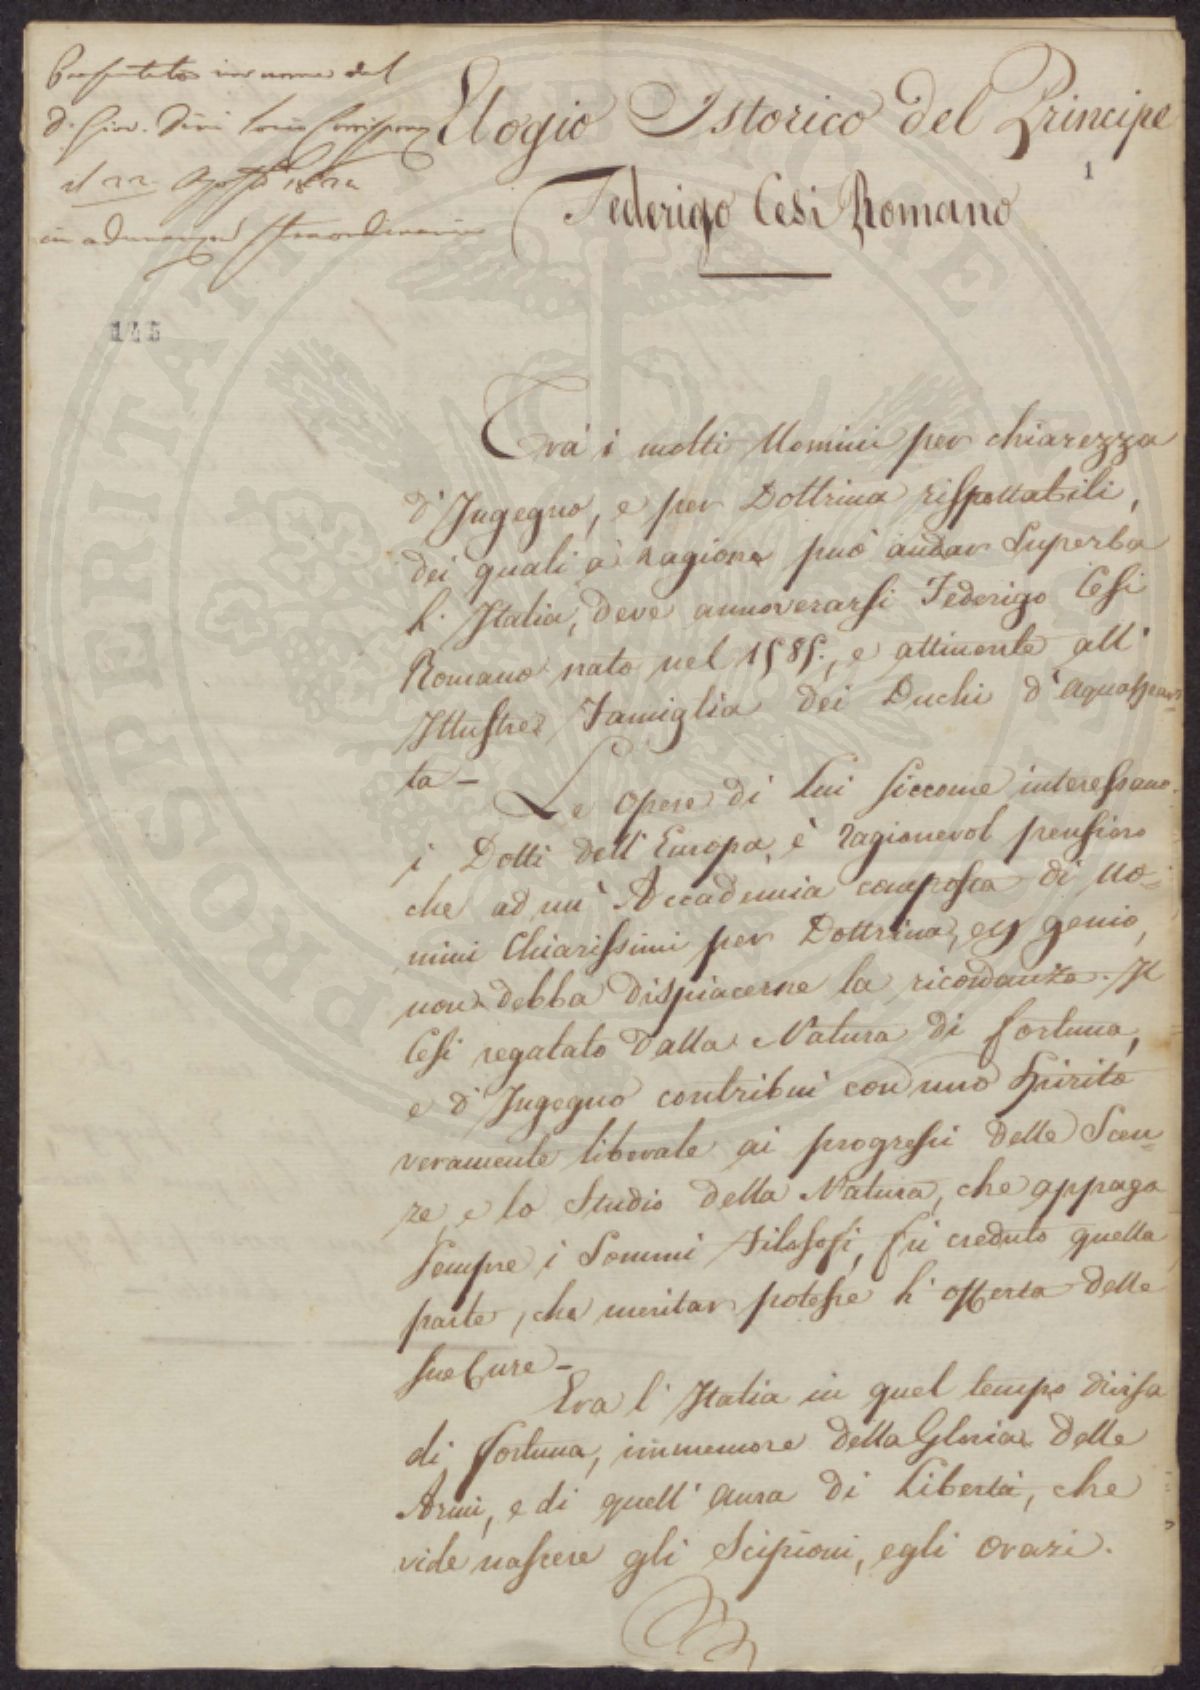 Presentato in nome del
D. Giov. Dini Socio Corrispon.
il 22 Agosto
in adunanza straordinaria
Elogio Istorico del Principe
1
Federigo Cesi Romano
145
Trà i molti Uomini per chiarezza
d'Ingegno, e per Dottrina rispettabili,
dei quali à ragione può andar Superba
l'Italia, deve annoverarsi Federigo Cesi
Romano nato nel 1585., e attinente all'
Illustre Famiglia dei Duchi d'Aquaspar=
ta - Le opere di Lui siccome interessano
i Dotti dell'Europa, è ragionevol pensiero
che ad un' Accademia composta di Uo=
mini Chiarissimi per Dottrina, e genio,
non debba dispiacerne la ricordanza. Il
Cesi regalato dalla Natura di fortuna,
e d'Ingegno contribuì con uno Spirito
veramente liberale ai progressi delle Scen=
ze, e lo Studio della Natura, che appaga
sempre i Sommi Filosofi, fù creduto quella
parte, che meritar potesse l'offerta delle
sue Cure -
Era l'Italia in quel tempo divisa
di fortuna, immemore della Gloria delle
Armi, e di quell'aura di Libertà, che
vide nascere gli Scipioni, e gli Orazi.
PROSPERITATI PUBLICAE